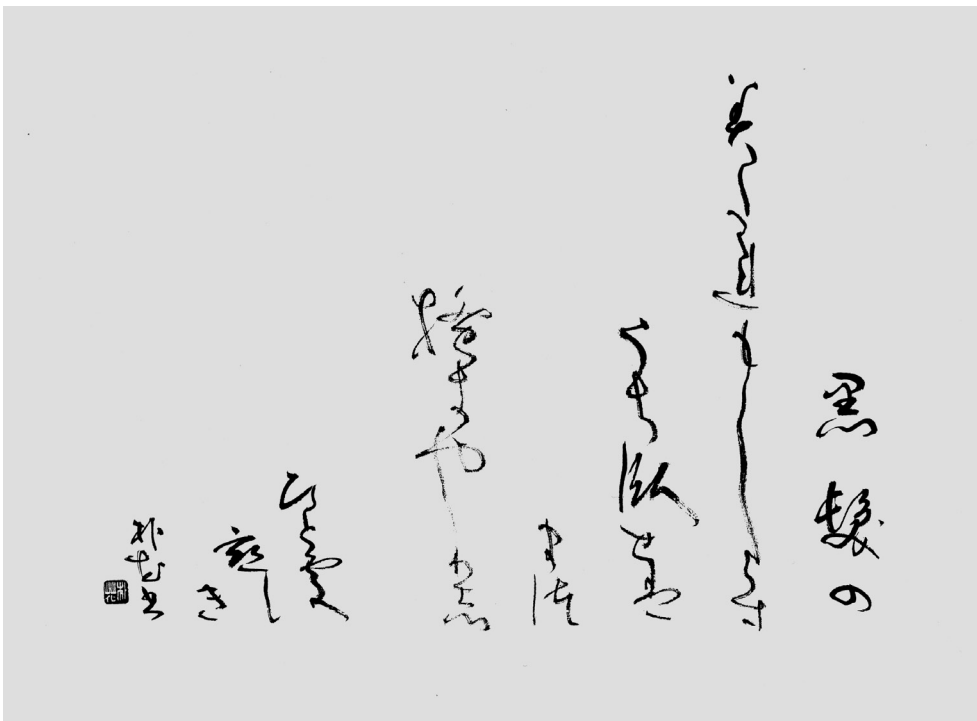 黒髪の
みたれもしらす
うち臥せは
まつ
掻きやりし
ひとそ
恋し
き